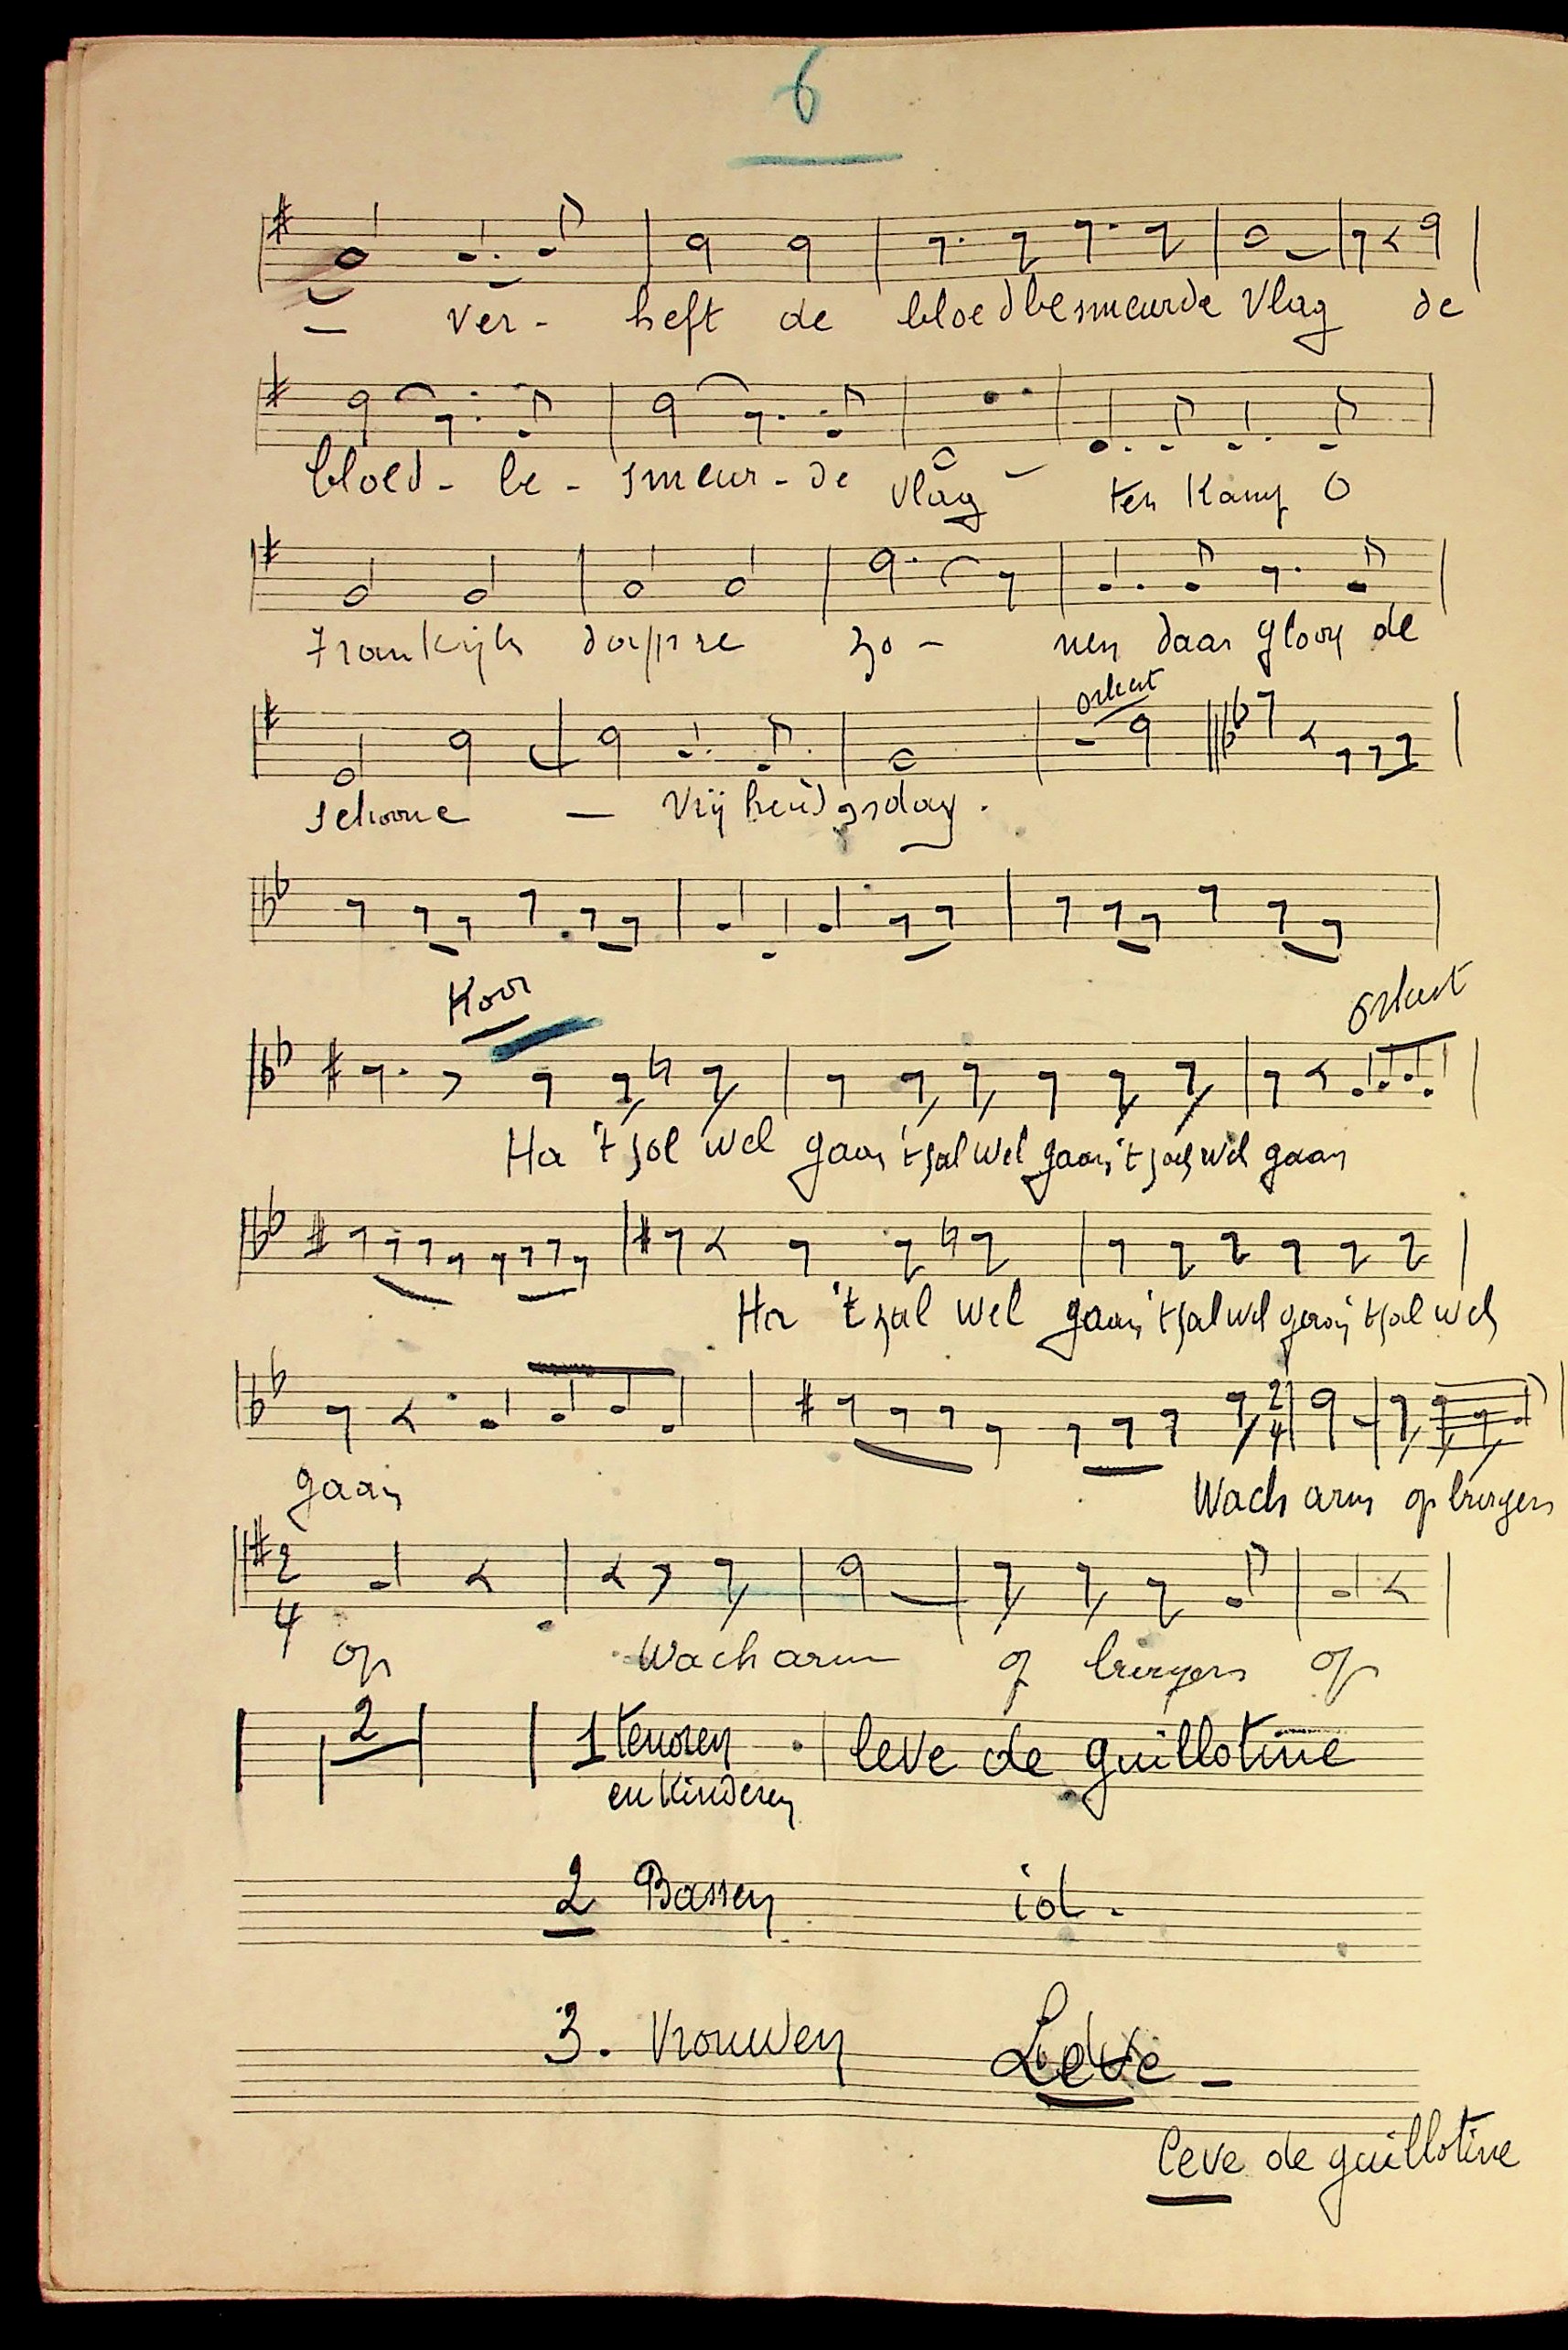 6
— Ver- heft de bloedbesmeurde Vlag de
bloed- be- smeur-de Vlag ten Kamp O
Frankrijks dapp're zo- nen daar gloort de
orkest
schoone — Vrijheidsdag.
Koor
orkest
Ha 't zal wel gaan 't zal wel gaan 't zal wel gaan
Ha 't zal wel gaan 't zal wel gaan 't zal wel
gaan
2
4
Wach arm op burgers
2
4
op Wach arm op burgers op
2 1 tenoren leve de guillotine
en Kinderen
2 Bassen id.
3. Vrouwen Leve -
leve de guillotine